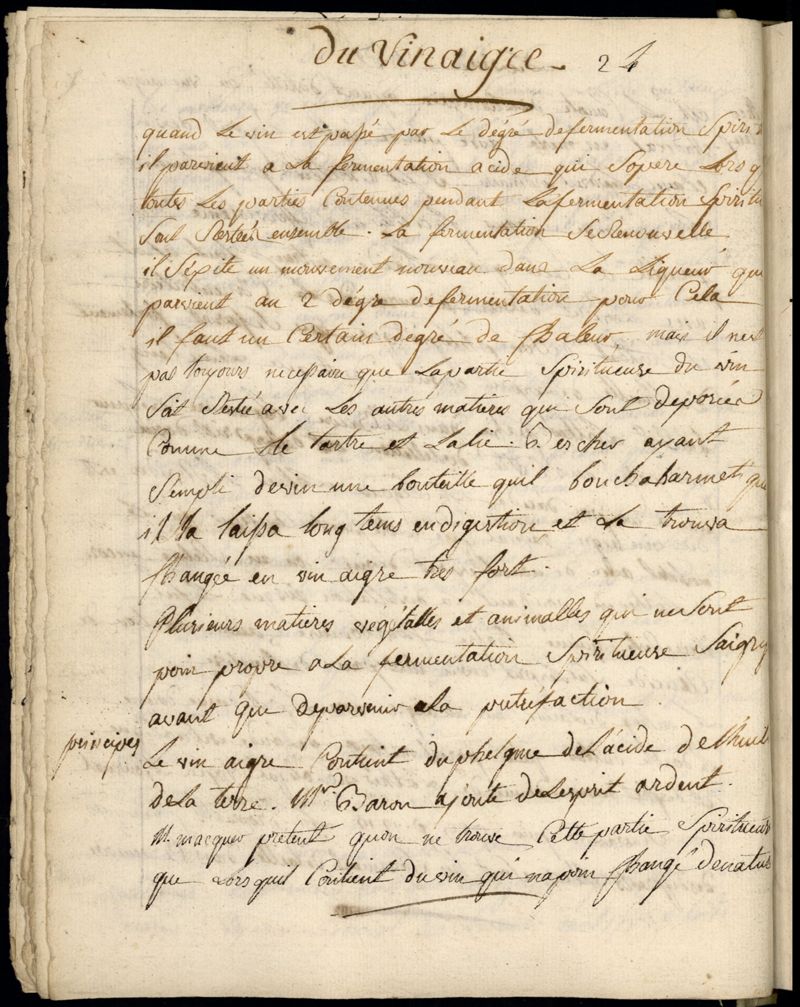 du Vinaigre. 24
quand Le vin est passé par Le dégré de fermentation Spirit
il parvient a La fermentation acide qui Sopere Lorsq
toutes Les parties Contenues pendant La fermentation Spiritu
Sont ensemble. La fermentation Se Renouvelle
il un mouvement nouveau dans La Liqueur qui
parvient au 2 dégré de fermentation pour Cela
il faut un Certain degré de Chaleur, mais il nest
pas toujours necessaire que La partie Spiritueuse du vin
Soit avec Les autres matieres qui Sont deposées
Comme le tartre et La lie. Becher ayant
Rempli de vin une bouteille quil boucha hermeti que
il la laissa long tems en digestion, et La trouva
Changée en vin aigre tres fort.
Plusieurs matieres végétalles et animalles qui ne Sont
poin propre a La fermentation Spiritueuse Saigr
avant que de parvenir a la putréfaction.
principes Le vin aigre Contient du phelgme de L'acide de Lhuil
de La terre. Mr. Baron ajoute de Lesprit ardent.
M. macquer pretent quon ne trouve Cette partie Spiritueus
que Lorsquil Contient du vin qui na poin Changé de natu